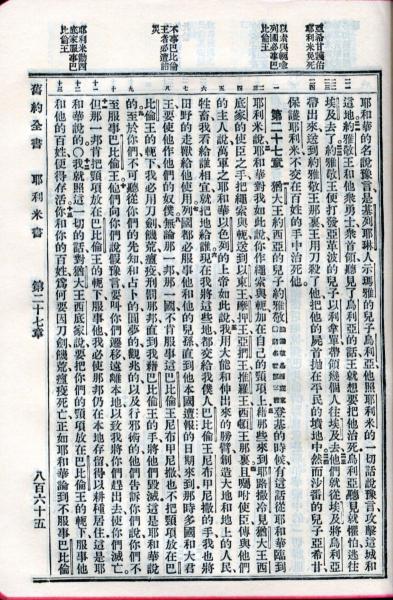 亞希甘護佑
耶利米免死
以索與軛喻
列國必事巴
比倫王
不事巴比倫
王者必遭誥
災
耶利米勸西
底家服事巴
比倫王
耶和華的名說豫言是基列耶琳人示瑪雅的兒子烏利亞他照耶利米的一切話說豫言攻擊這城和
這地約雅敬王和他衆勇士衆首領聽見了烏利亞的話王就想要把他治死烏利亞聽見就懼怕逃往
埃及去了約雅敬王便打發亞革波的兒子以利拿單帶領幾個人往埃及去他們就從埃及將烏利亞
帶出來送到約雅敬王那裏王用刀殺了他把他的屍首拋在平民的墳地中然而沙番的兒子亞希甘
保護耶利米不交在百姓的手中治死他
第二十七章 猶大王約西亞的兒子約雅敬 登基的時候有這話從耶和華臨到
耶利米說耶和華對我如此說你作繩索與軛加在自己的頸項上藉那些來到耶路撒冷見猶大王西
底家的使臣之手把繩索與軛送到以東王摩押王亞捫王推羅王西頓王那裏且囑咐使臣傳與他們
的主人說萬軍之耶和華以色列的上帝如此說我用大能和伸出來的膀臂創造大地和地上的人民
牲畜我看給誰相宜就把地給誰現在我將這些地都交給我僕人巴比倫王尼布甲尼撒的手我也將
田野的走獸給他使用列國都必服事他和他的兒孫直到他本國遭報的日期來到那時多國和大君
王要使他作他們的奴僕無論那一邦那一國不肯服事這巴比倫王尼布甲尼撒也不把頸項放在巴
比倫王的軛下我必用刀劍饑荒瘟疫刑罰那邦直到我藉巴比倫王的手將他們毀滅這是耶和華說
的至於你們不可聽從你們的先知和占卜的圓夢的觀兆的以及行邪術的他們告訴你們說你們不
至服事巴比倫王他們向你們說假豫言要叫你們遷移遠離本地以致我將你們趕出去使你們滅亡
但那一邦肯把頸項放在巴比倫王的軛下服事他我必使那邦仍在本地存留得以耕種居住這是耶
和華說的我就照這一切的話對猶大王西底家說要把你們的頸項放在巴比倫王的軛下服事他
和他的百姓便得存活你和你的百姓為何要因刀劍饑荒瘟疫死亡正如耶和華論到不服事巴比倫
舊約全書 耶利米書 第二十七章 八百六十五